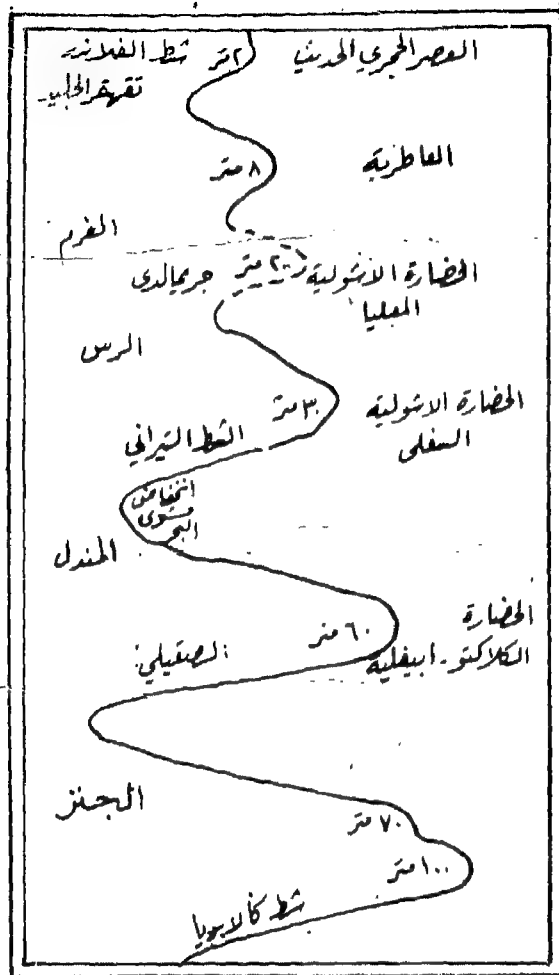 العصر الحجري الحديث
٢ متر
شط الفلاندر
تقهقر الجليد
العاطرية
٨ متر
الفرم
الحضارة الاشولية
العليا
٢٠ متر
جريمالدى
الرس
الحضارة الاشولية
السفلى
٣٠ متر
الشط التيراني
انخفاض
مستوى
البحر
المندل
الحضارة
الكلاكتو - ابيفلية
٦٠ متر
الصقيلي
الجنز
٧٠ متر
١٠٠ متر
شط كالابريا